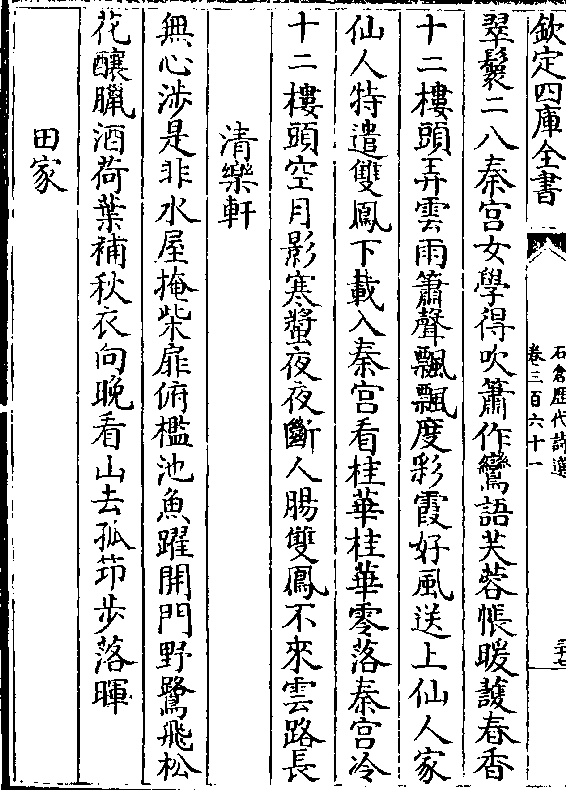 欽定四庫全書
石倉歷代詩選
卷三百六十一
翠鬟二八秦宫女學得吹簫作鸞語芙蓉帳暖護春香
十二樓頭弄雲雨簫聲飄飄度彩霞好風送上仙人家
仙人特遣雙鳳下載入秦宫看桂華桂華零落秦宫冷
十二樓頭空月影寒螿夜夜斷人腸雙鳳不來雲路長
清樂軒
無心涉是非水屋掩柴扉俯檻池魚躍開門野鷺飛松
花釀臘酒荷葉補秋衣向晚看山去孤笻步落暉
田家